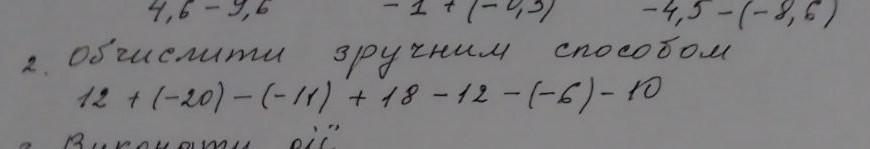 4,6 - 9,6 -1 + (-0,3) -4,5 - (-8,6)
2. Обчислити зручним способом
12 + (-20) - (-11) + 18 - 12 - (-6) - 10
Виконати дії